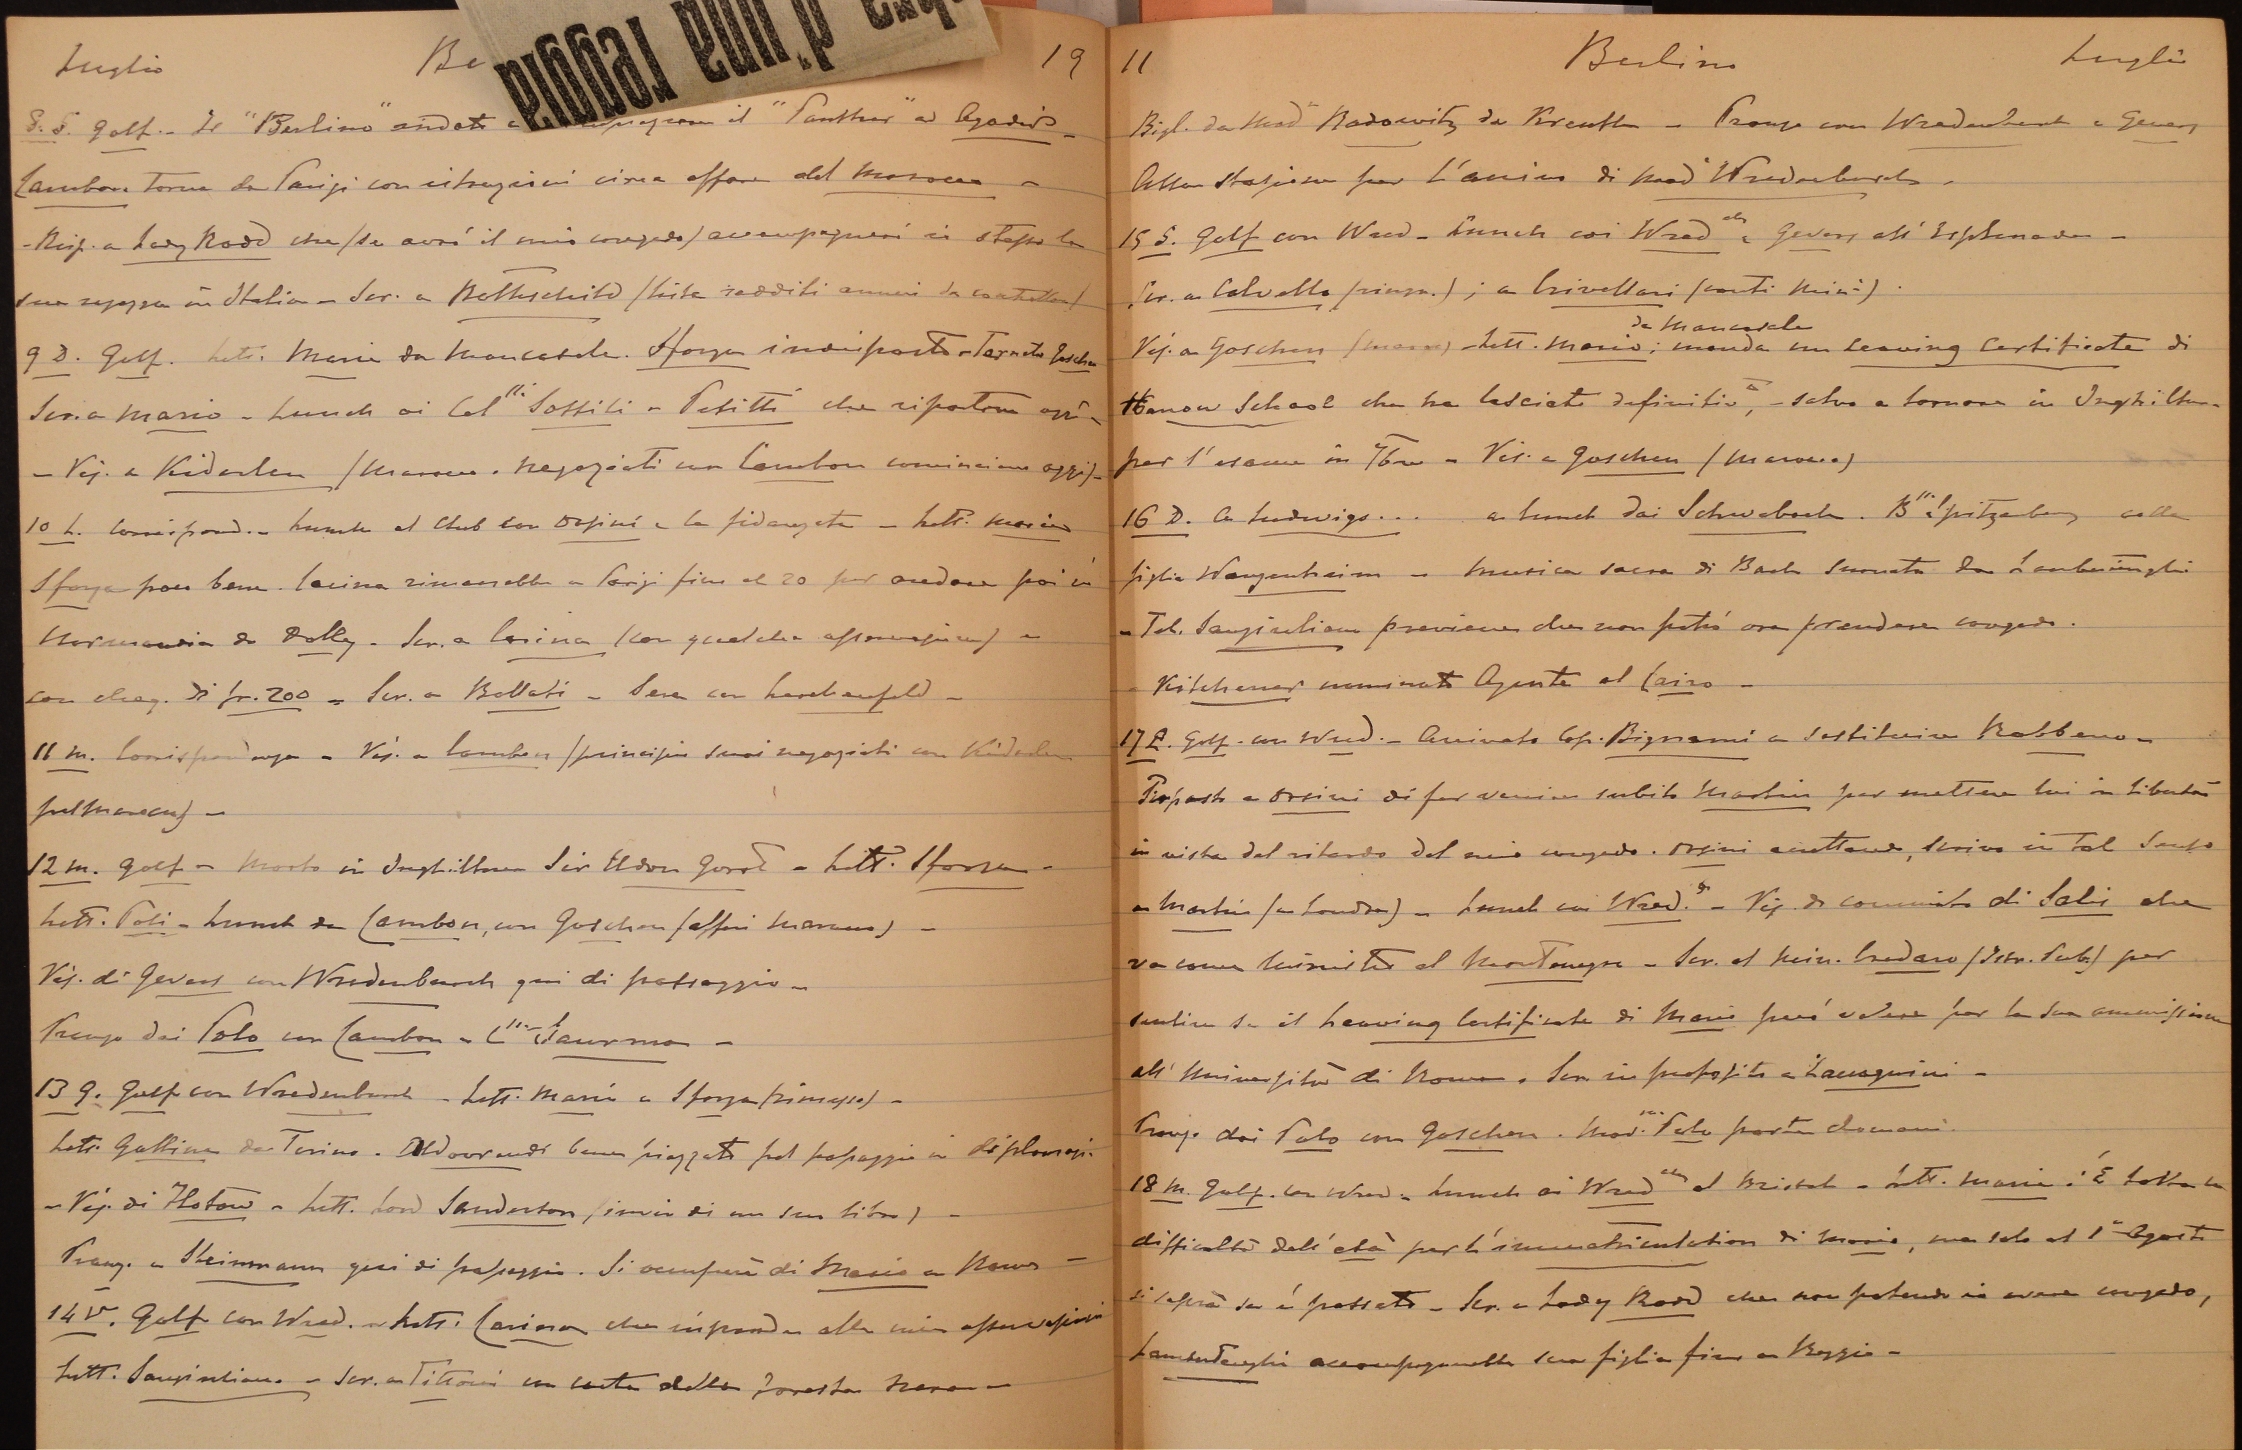 Luglio Be 19
8. S. Golf. - Il "Berlino" andato a il "Panther" ad Agadir -
Cambon torna da Parigi con istruzioni circa affare del Marocco -
- Risp. a Lady Rodd che (se avrò il mio congedo) accompagnerei io stesso la
sua ragazza in Italia - Scr. a Rothschild (lista redditi annui
9 D. Golf. Lett. Mario da Moncasale. Sforza indisposto - Tornato Goschen
Scr. a Mario - Lunch ai Col.lli Sottili e Petitti che ripartono oggi -
- Vis. a Kiderlen (Marocco. negoziati con Cambon cominciano oggi) -
10 L. Corrispond. - Lunch al Club con Orsini e la fidanzata - Lett. Mario
Sforza poco bene. Carina rimarrebbe a Parigi fino al 20 per andare poi in
Normandia da Dolly - Scr. a Carina (con qualche osservazione) -
con cheq. di fr. 200 - Scr. a Bollati - Sera con Lerchenfeld -
11 M. Corrispondenza - Vis. a Cambon (principio suoi negoziati con Kiderlen
pel Marocco) -
12 M. Golf - Morto in Inghilterra Sir Eldon Gorst - Lett. Sforza -
Lett. Poli - Lunch da Cambon, con Goschen (affari Marocco) -
Vis. di Gevers con Wredenburch qui di passaggio -
Pranzo dai Polo con Cambon e C.ssa Saurma -
13 G. Golf con Wredenburch - Lett. Mario e Sforza (rimesso) -
Lett. Gallina da Torino. Aldovrandi bene piazzato pel passaggio in diplomazia
- Vis. di Flotow - Lett. Lord Sanderson (invio di un suo libro) -
Pranz. a Steinmann qui di passaggio. Si occuperà di Mario a Roma -
14 V. Golf con Wred. - Lett. Carina che risponde alle mie osservazioni
Lett. Sangiuliano - Scr. a Tittoni con carta della Foresta Nera -
11 Berlino Luglio
Bigl. da Mad.e Radowitz da Kreuth - Pranzo con Wredenburch e Gevers
Alla stazione per l'arrivo di Mad.e Wredenburch -
15 S. Golf con Wred - Lunch coi Wred e Gevers all'Esplanade -
Scr. a Calvello (ringr.); a Crivellari (conti Mini) .
da Moncasale
Vis. a Goschen (Marocco) - Lett. Mario; manda un Leaving Certificate di
Harrow School che ha lasciato definitiv.e, - salvo a tornare in Inghilterra
per l'esame in 7bre - Vis. a Goschen (Marocco)
16 D. A Ludwigs... a lunch dai Schwabach. B.ssa Spitzemberg colla
figlia Wangenheim - Musica sacra di Bach suonata da Lambertenghi
- Tel. Sangiuliano previene che non potrò ora prendere congedo.
- Kitchener nominato Agente al Cairo -
17 L. Golf. con Wred. - Arrivato Cap. Bignami a sostituire Rabbeno -
Proposto a Orsini di far venire subito Martin per mettere lui in libertà
in vista del ritardo del mio congedo. Orsini accettando, scrivo in tal senso
a Martin (a Londra) - Lunch coi Wred. - Vis. di commiato di Salis che
va come Ministro al Montenegro - Scr. al Min. Credaro (Istr. Pub) per
sentire se il Leaving Certificate di Mario può valere per la sua ammissione
all'Università di Roma. Scr. in proposito a
Pranzo dai Polo con Goschen. Mad. Polo parte domani.
18 M. Golf. con Wred - Lunch ai Wred al Bristol - Lett. Mario: È tolta la
difficoltà dell'età per l'immatriculation di Mario, ma solo al 1° Agosto
si saprà se è passato - Scr. a Lady Rodd che non potendo io avere congedo,
Lambertenghi accompagnerebbe sua figlia fino a Reggio -